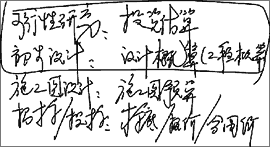 可行性研究:投资估算
初步设计:设计概算(工程概算
施工图设计:施工图预算
招标/投标:标底/报价/合同价